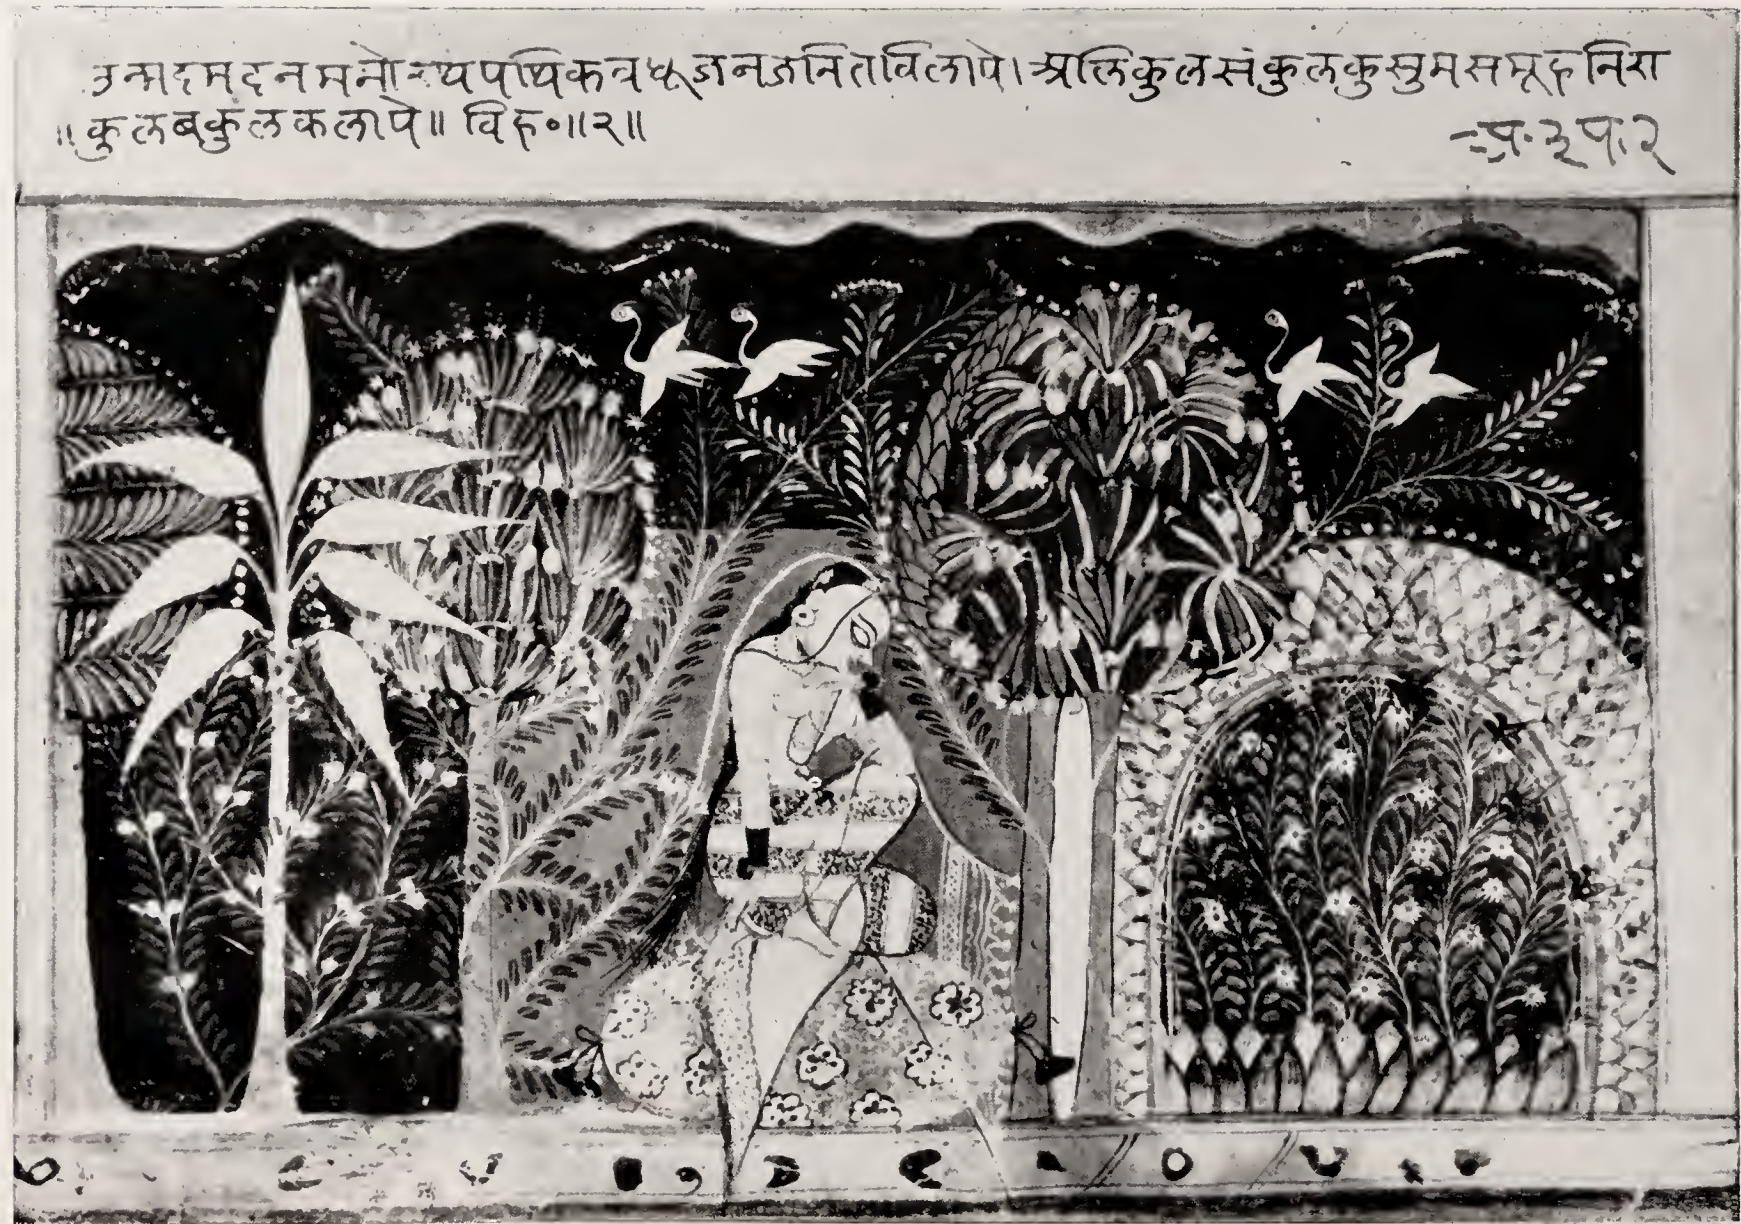 उन्मदमदनमनोरथपथिकवधूजनजनितविलापे। अलिकुलसंकुलकुसुमसमूहनिरा
॥ कुलबकुलकलापे॥ विह॰॥२॥ प्र. ३ प. २